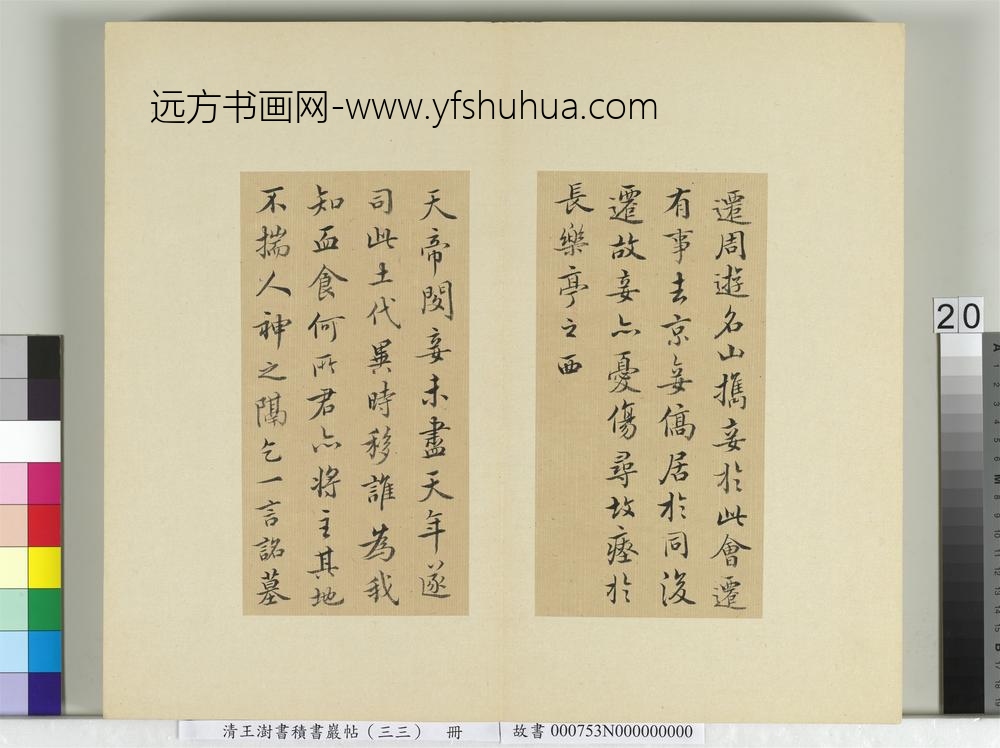 远方书画网-www.yfshuhua.com
遷周遊名山攜妾於此會遷
有事去京妾僑居於同後
遷故妾亦憂傷尋故瘞於
長樂亭之西
天帝閔妾未盡天年遂
司此土代異時移誰為我
知血食何所君亦將主其地
不揣人神之隔乞一言銘墓
20
清王澍書積書巖帖（三三） 冊
故書 000753N000000000